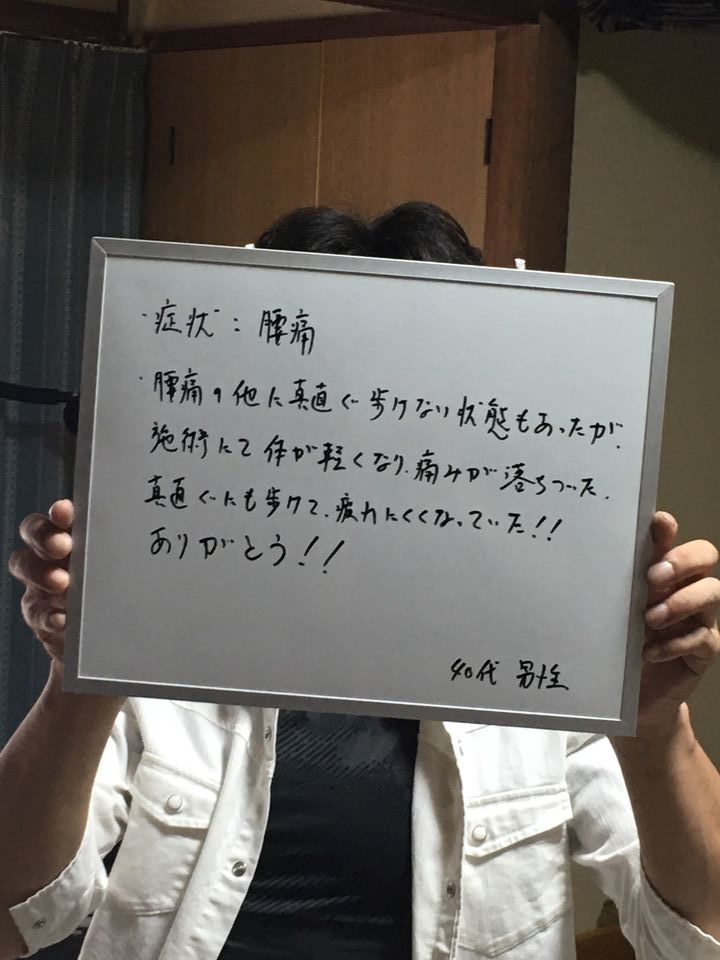 ・症状：腰痛
・腰痛の他に真直ぐ歩けない状態もあったが、
施術にて体が軽くなり、痛みが落ちついた。
真直ぐにも歩けて、疲れにくくなっていた！！
ありがとう！！
40代 男性